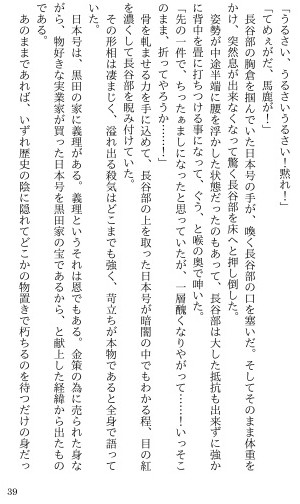 「うるさい、うるさいうるさい！黙れ！」
「てめぇがだ、馬鹿が！」
　長谷部の胸倉を掴んでいた日本号の手が、喚く長谷部の口を塞いだ。そしてそのまま体重を
かけ、突然息が出来なくなって驚く長谷部を床へと押し倒した。
　姿勢が中途半端に腰を浮かした状態だったのもあって、長谷部は大した抵抗も出来ずに強か
に背中を畳に打ちつける事になって、ぐう、と喉の奥で呻いた。
「先の一件で、ちったぁましになったと思っていたが、一層醜くなりやがって……！いっそこ
のまま、折ってやろうか……！」
　骨を軋ませる力を手に込めて、長谷部の上を取った日本号が暗闇の中でもわかる程、目の紅
を濃くして長谷部を睨み付けていた。
　その形相は凄まじく、溢れ出る殺気はどこまでも強く、苛立ちが本物であると全身で語って
いた。
　日本号は、黒田の家に義理がある。義理というそれは恩でもある。金策の為に売られた身な
がら、物好きな実業家が買った日本号を黒田家の宝であるから、と献上した経緯から出たもの
である。
　あのままであれば、いずれ歴史の陰に隠れてどこかの物置きで朽ちるのを待つだけの身だっ
た。
39